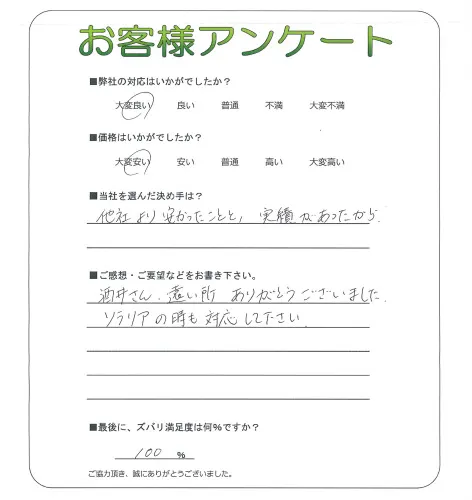 お客様アンケート
■弊社の対応はいかがでしたか？
大変良い 良い 普通 不満 大変不満
■価格はいかがでしたか？
大変安い 安い 普通 高い 大変高い
■当社を選んだ決め手は？
他社より安かったことと, 実績があったから.
■ご感想・ご要望などをお書き下さい。
酒井さん、遠い所 ありがとうございました.
ソラリアの時も対応して下さい.
■最後に、ズバリ満足度は何%ですか？
100 %
ご協力頂き、誠にありがとうございました。